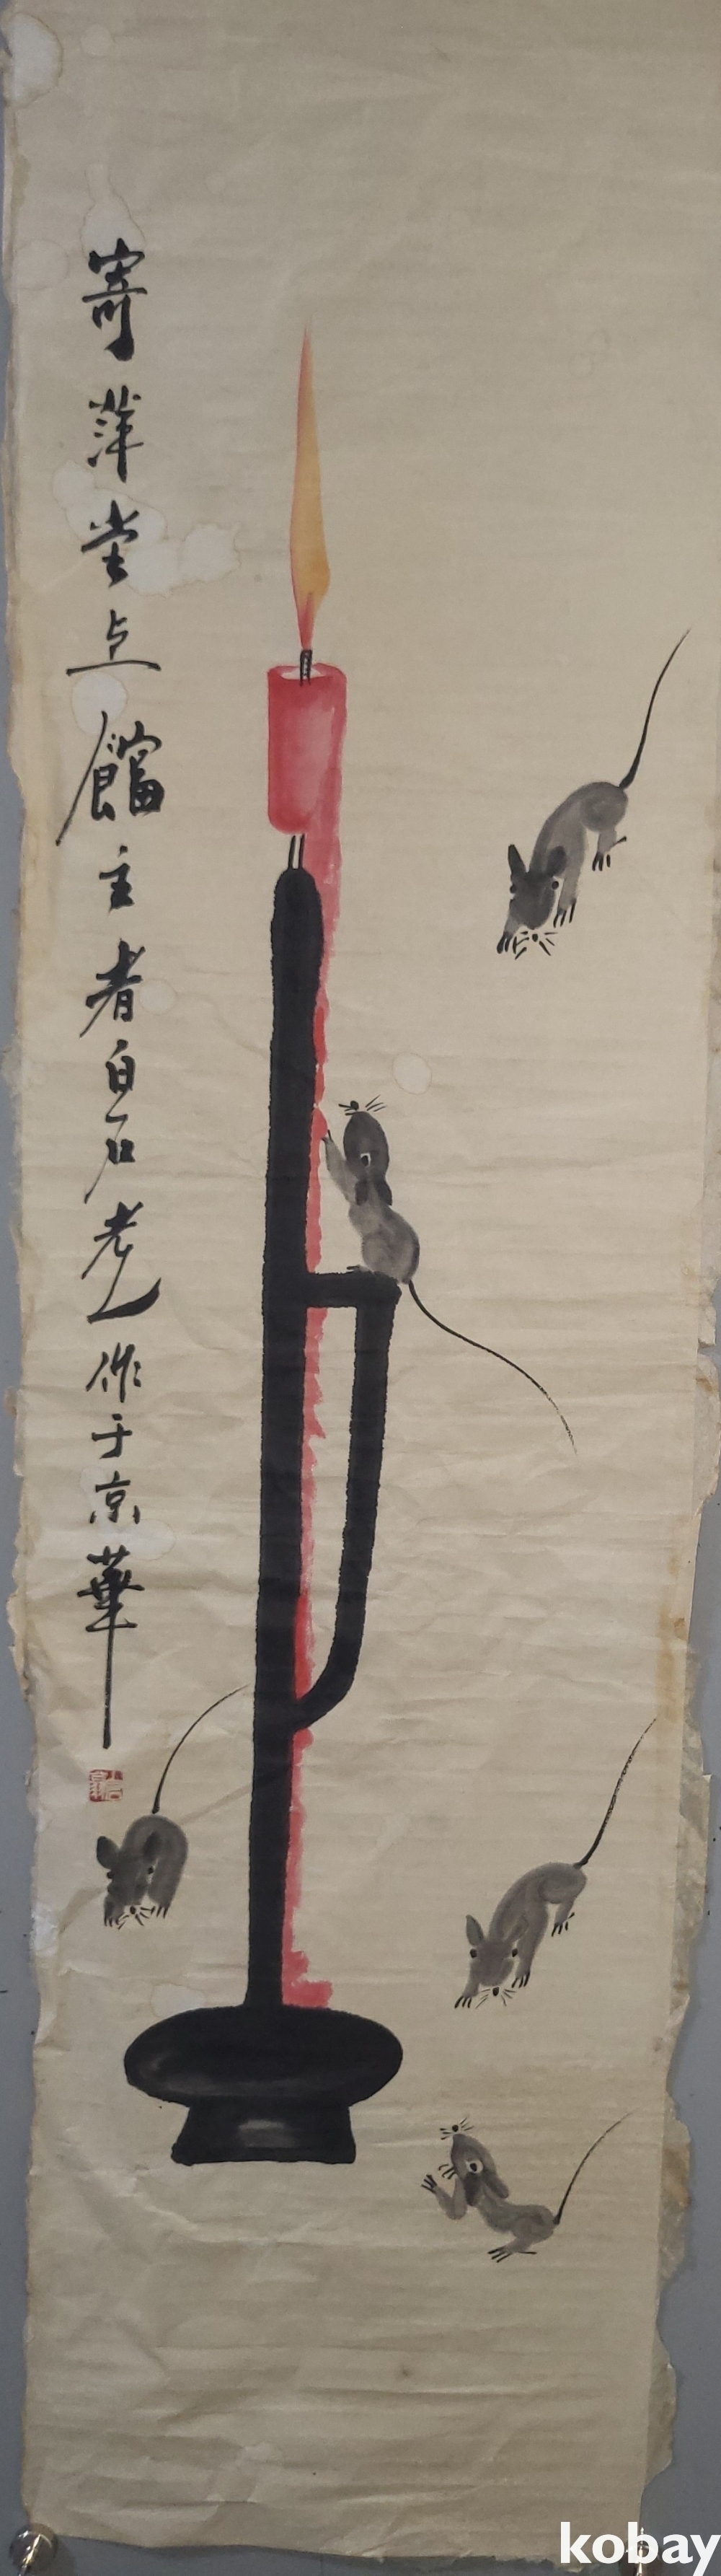 寄萍堂上
主者白石老人作于京華
kobay